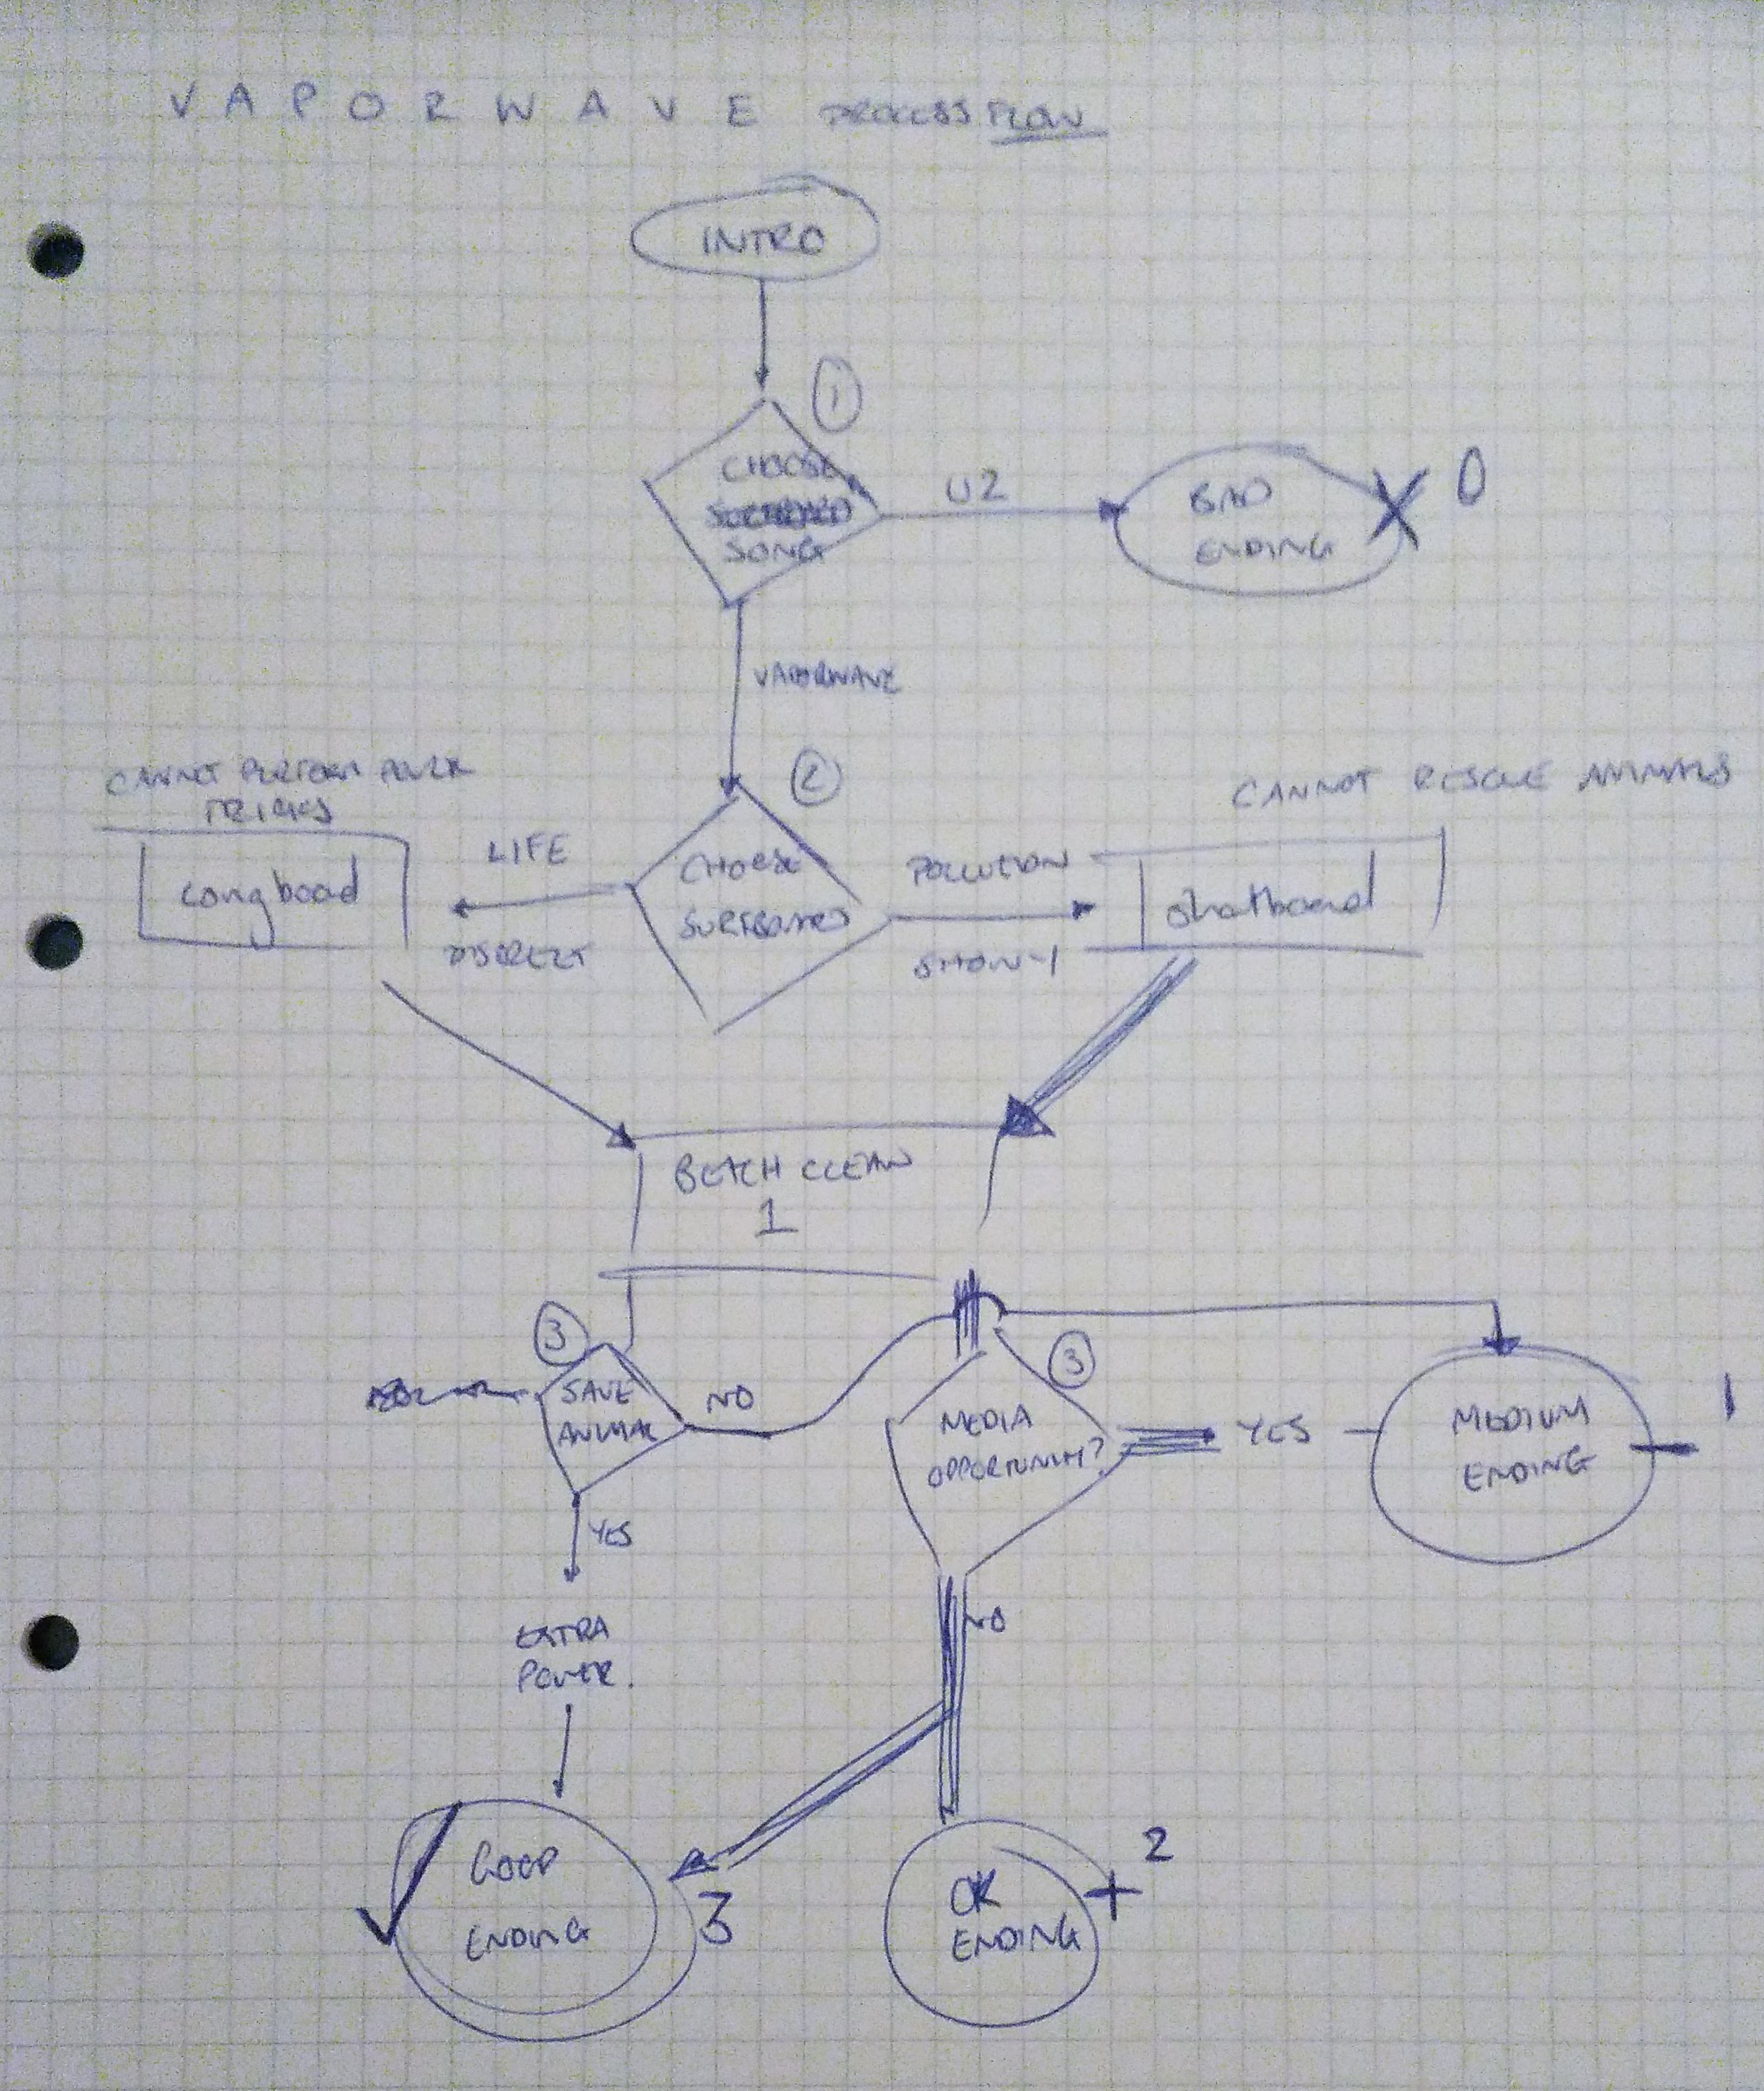 VAPORWAVE PROCESS FLOW
INTRO
1
CHOOSE
SONG
U2
BAD
ENDING
X 0
VAPORWAVE
CANNOT PERFORM POWER
TRICKS
2
CANNOT RESCUE ANIMALS
longboad
LIFE
CHOOSE
SURFBOARD
POLLUTION
shortboard
SHOW-1
BEACH CLEAN
1
3
SAVE
ANIMAL
NO
3
MEDIA
OPPORTUNITY?
YES
MEDIUM
ENDING
1
YES
NO
EXTRA
POWER.
GOOD
ENDING
3
OK
ENDING
+ 2